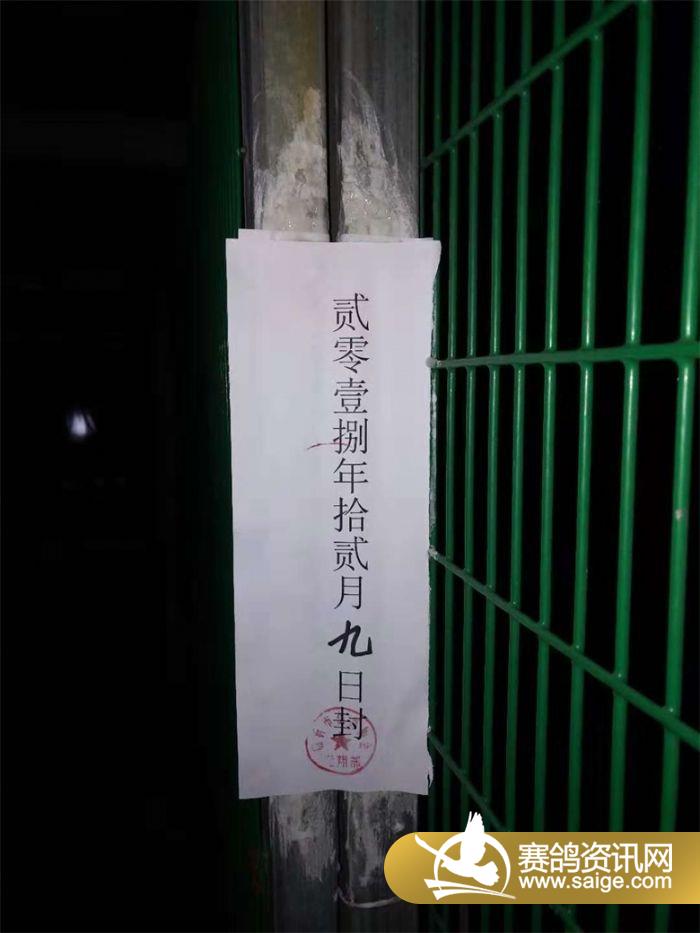 贰零壹捌年拾贰月九日封
赛鸽资讯网
www.saige.com